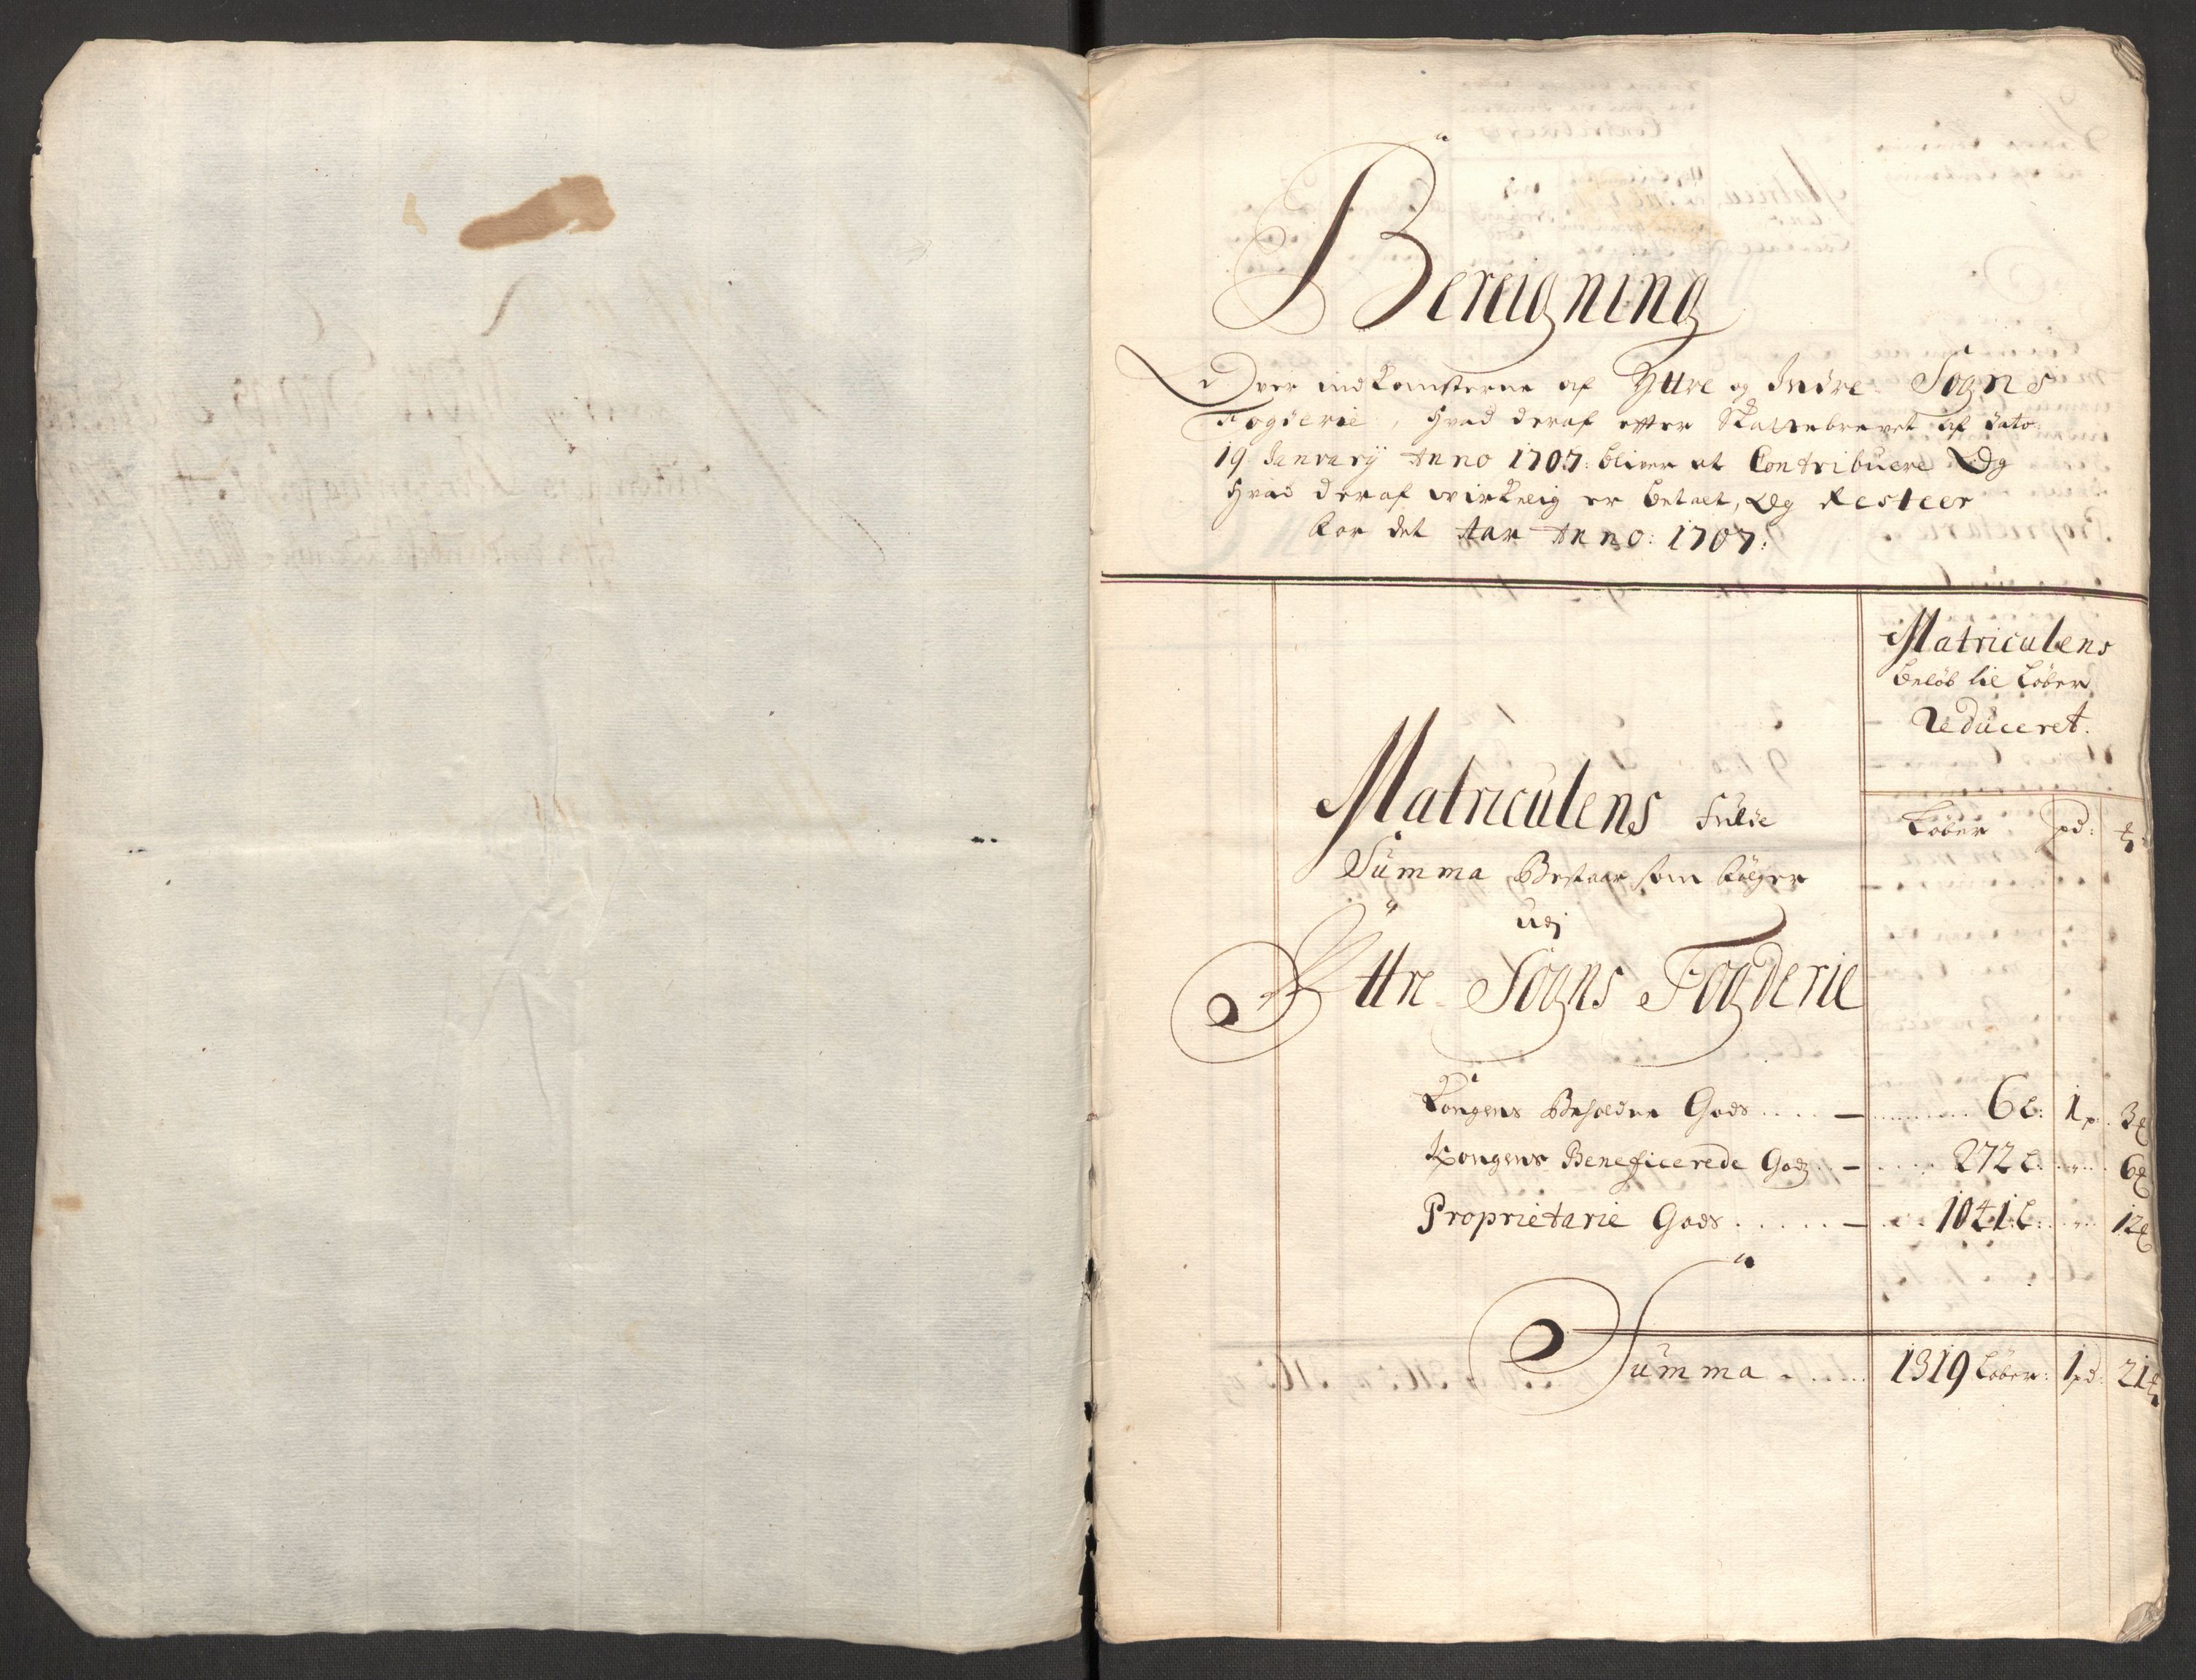 Bereigning
Over indkomsterne af Yttre og Indre Sogns
Fogderie, hvad deraf efter Skattebrevet af dato
19 January Anno 1707: bliver at Contribuere Og
hvad deraf wirkelig er betalt, Og Resteer
for det Aar Anno: 1707:
Matriculens
beløb til Løber
Reduceret.
Løber pd: ℔:
Matriculens fulde
Summa Bestaar som følger
udj
Yttre Sogns Fogderie
Kongens Beholdne Gods .... — ...... 6 L: 1 p. 3 ℔
Kongens Beneficerede Godz .. — .... 272 L: .. „ .. 6 ℔
Proprietarie Gods ..... — ... 1041 L: .. „ .. 12 ℔
Summa ...... 1319 Løber: 1 pd: 21 ℔